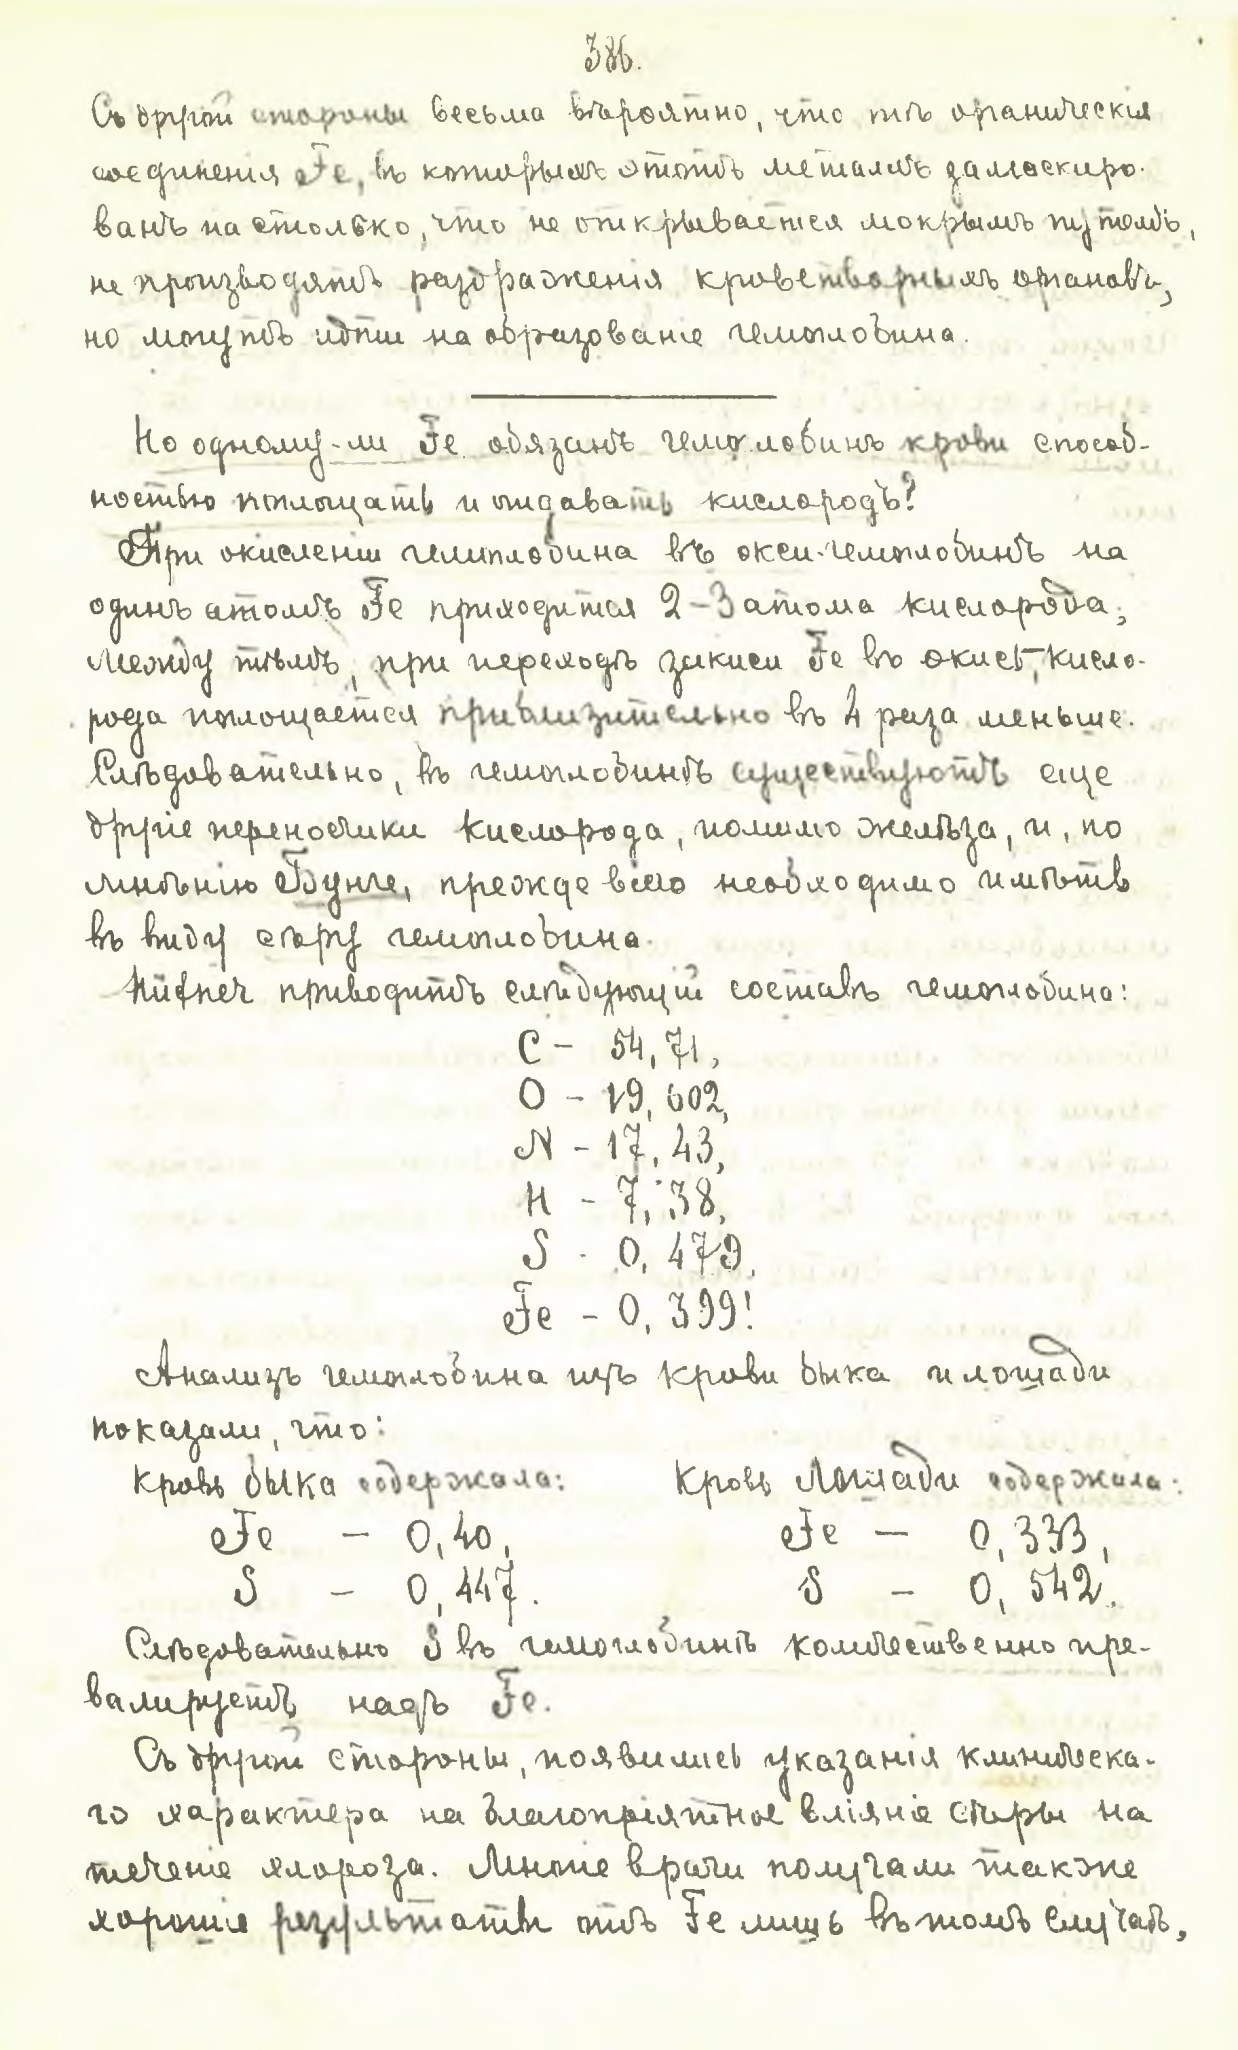 386.
Съ другой стороны весьма вѣроятно, что тѣ органическія
соединенія Fe, въ которыхъ этотъ металлъ замаскиро-
ванъ на столько, что не открывается мокрымъ путемъ,
не производятъ раздраженія кроветворныхъ органовъ,
но могутъ идти на образованіе гемоглобина.
Но одному-ли Fe обязанъ гемоглобинъ крови способ-
ностью поглощать и отдавать кислородъ?
При окисленіи гемоглобина въ окси-гемоглобинъ на
одинъ атомъ Fe приходится 2-3 атома кислорода;
Между тѣмъ, при переходѣ закиси Fe въ окись, кисло-
рода поглощается приблизительно въ 4 раза меньше.
Слѣдовательно, въ гемоглобинѣ существуютъ еще
другіе переносчики кислорода, помимо желѣза, и, по
мнѣнію Бунге, прежде всего необходимо имѣть
въ виду сѣру гемоглобина.
Hüfner приводитъ слѣдующій составъ гемоглобина:
C - 54,71,
O - 19,602,
N - 17,43,
H - 7,38,
S - 0,479,
Fe - 0,399!
Анализъ гемоглобина изъ крови быка и лошади
показали, что:
Кровь быка содержала: Кровь Лошади содержала:
Fe - 0,40, Fe - 0,333,
S - 0,447. S - 0,542.
Слѣдовательно S въ гемоглобинѣ количественно пре-
валируетъ надъ Fe.
Съ другой стороны, появились указанія клиническа-
го характера на благопріятное вліяніе сѣры на
теченіе хлороза. Многіе врачи получали также
хорошіе результаты отъ Fe лишь въ томъ случаѣ,